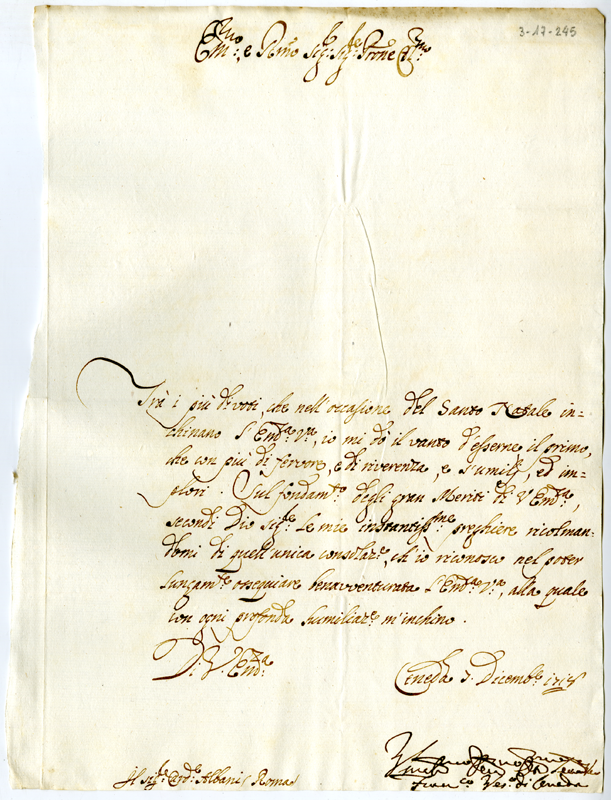 3-17-245
Em:mo e Rmo Sig:r Sig:re Prone Col:mo
Trà i più divoti, che nell'occasione del Santo Natale in=
chinano l'Em:za V:ra, io mi dò il vanto d'esserne il primo,
che con più di fervore, e di riverenza, e s'umilij, ed im=
plori. Sul fondam:to degli gran Meriti di V Em:za,
secondi Dio Sig:re le mie instantiss:me preghiere ricolman=
domi di quell'unica consolaz:e, ch'io riconosco nel poter
lungam:te ossequiare benavventurata l'Em:za V:ra, alla quale
con ogni profonda humiliaz:e m'inchino.
Di V. Em:za
Ceneda Dicemb:e
Il Sig:re Card:le Albani Roma
Fran:co Ves:o di Ceneda